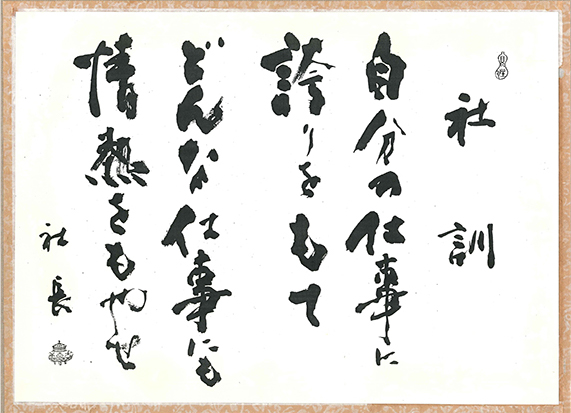 社訓
自分の仕事に
誇りをもて
どんな仕事にも
情熱をもやせ
社長